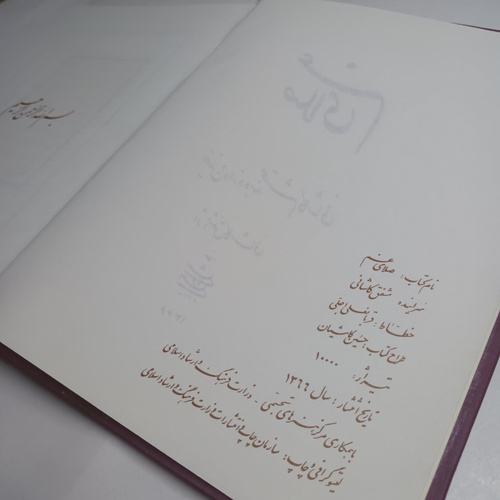 بسم الله الرحمن الرحیم
صلای غم
نام کتاب: صلای غم
سراینده: مشفق کاشانی
خطاط: قربانعلی اجلی
طراح کتاب: حسین کاشیان
تیراژ: ۱۰۰۰۰
تاریخ انتشار: سال ۱۳۶۶
با همکاری مرکز هنرهای تجسمی - وزارت فرهنگ و ارشاد اسلامی
لیتوگرافی و چاپ: سازمان چاپ و انتشارات وزارت فرهنگ و ارشاد اسلامی